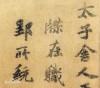 太子舍人
牒在職
鄞所統